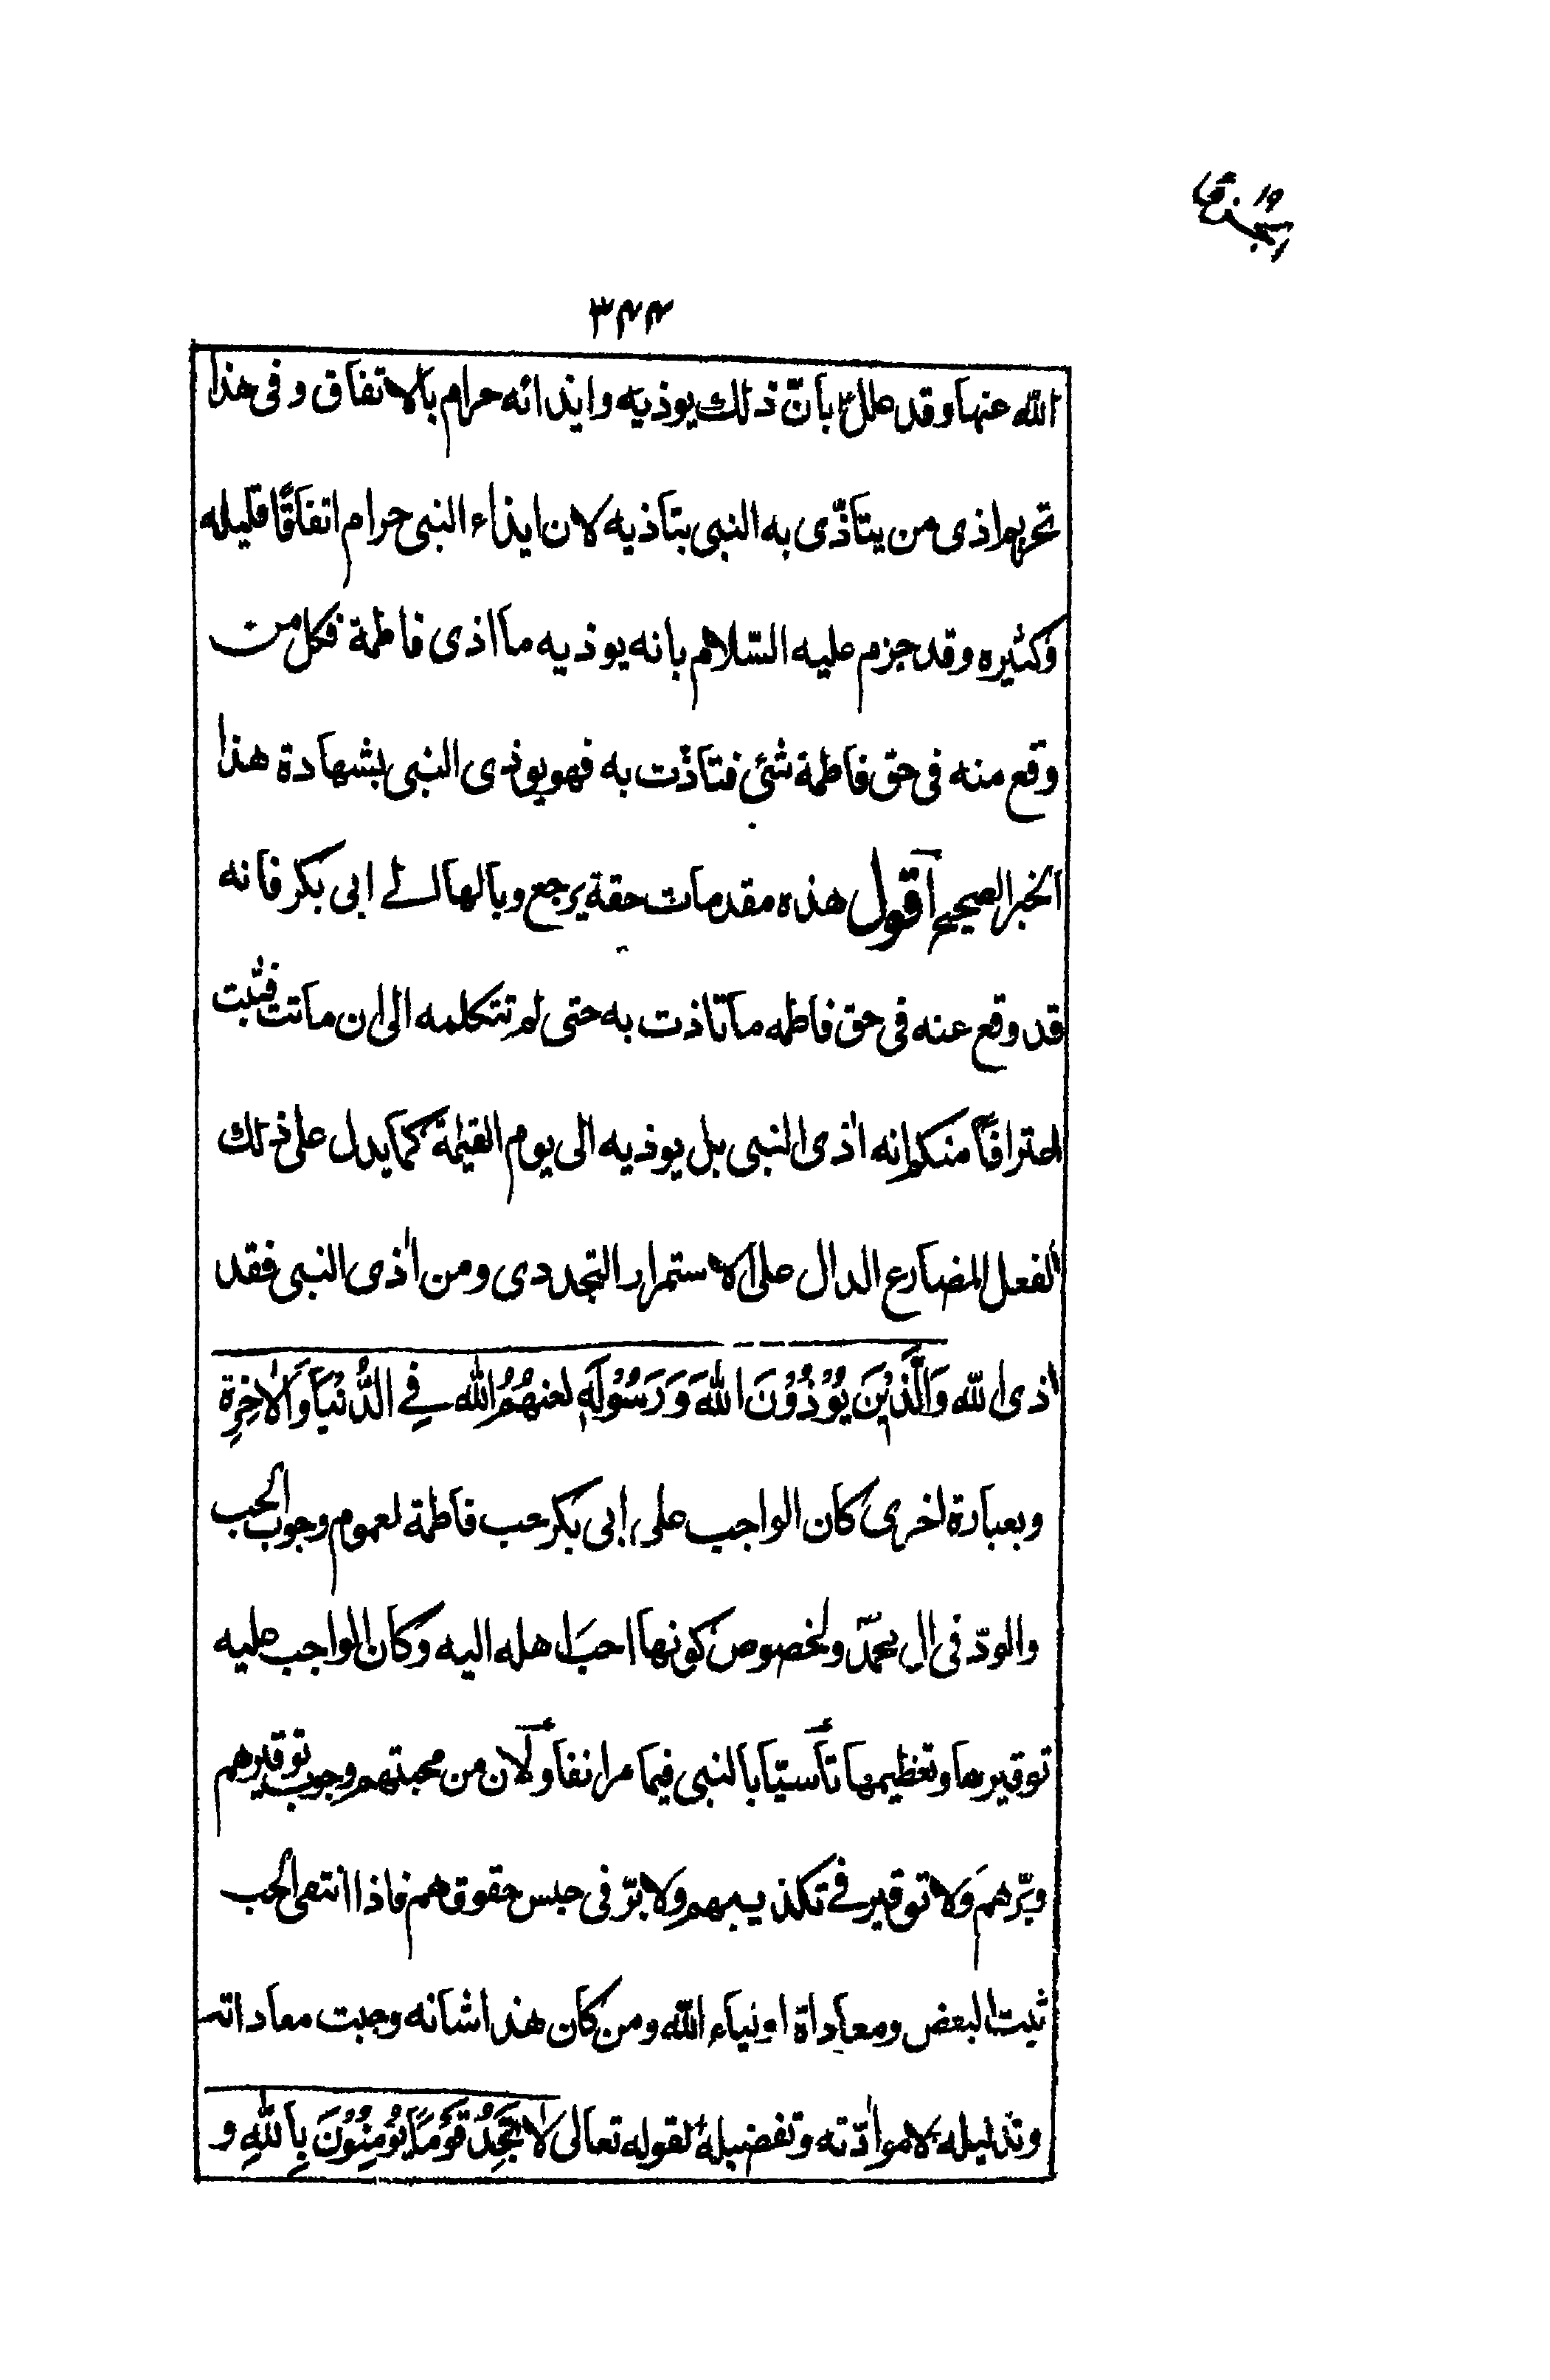 ٣٤٤
الله عنها وقد علل بانّ ذلك يوذيه وايذائه حرام بالاتفاق وفى هذا
تحريم اذى من يتاذّى به النبى بتاذيه لان ايذاء النبى حرام اتفاقًا قليله
وكثيره وقد جزم عليه السّلام بانه يوذيه ما اذى فاطمة فكل من
وقع منه فى حق فاطمة شئ فتاذّت به فهو يوذى النبى بشهادة هذا
الخبر الصحيح آقول هذه مقدمات حقة يرجع وبالها الے ابى بكر فانه
قد وقع عنه فى حق فاطمه ما تاذت به حتى لم تتكلمه الى ان ماتت فثبت
اعترافًا منكم انه اٰذى النبى بل يوذيه الى يوم القيٰمة كما يدل على ذلك
الفعل المضارع الدال على الاستمرار التجددى ومن اٰذى النبى فقد
اٰذى الله وَالَّذِيْنَ يُوْذُوْنَ اللهَ وَرَسُوْلَهٗ لعنهُمُ الله فے الدُّنْيَا وَالْاٰخِرِة
وبعبارة اخرى كان الواجب على ابى بكر حب فاطمة لعموم وجوب الحب
والودّ فى ال محمدّ ولخصوص كونها احبَ اهله اليه وكان الواجب عليه
توقيرها وتعظيمها تأسيّا بالنبى فيما مر انفا ولان من محبتهم وجوب توقيرهم
وبرّهم ولا توقير فے تكذيبهم ولا برّ فى حبس حقوق هم فاذا انتفى الحب
ثبت البغض ومعاداة اولياء الله ومن كان هذا شانه وجبت معاداته
وتذليله لا موادّته وتفضيله لقوله تعالى لَا تَجِدُ قَوْمًا يُّؤْمِنُوْنَ بِاللهِ و